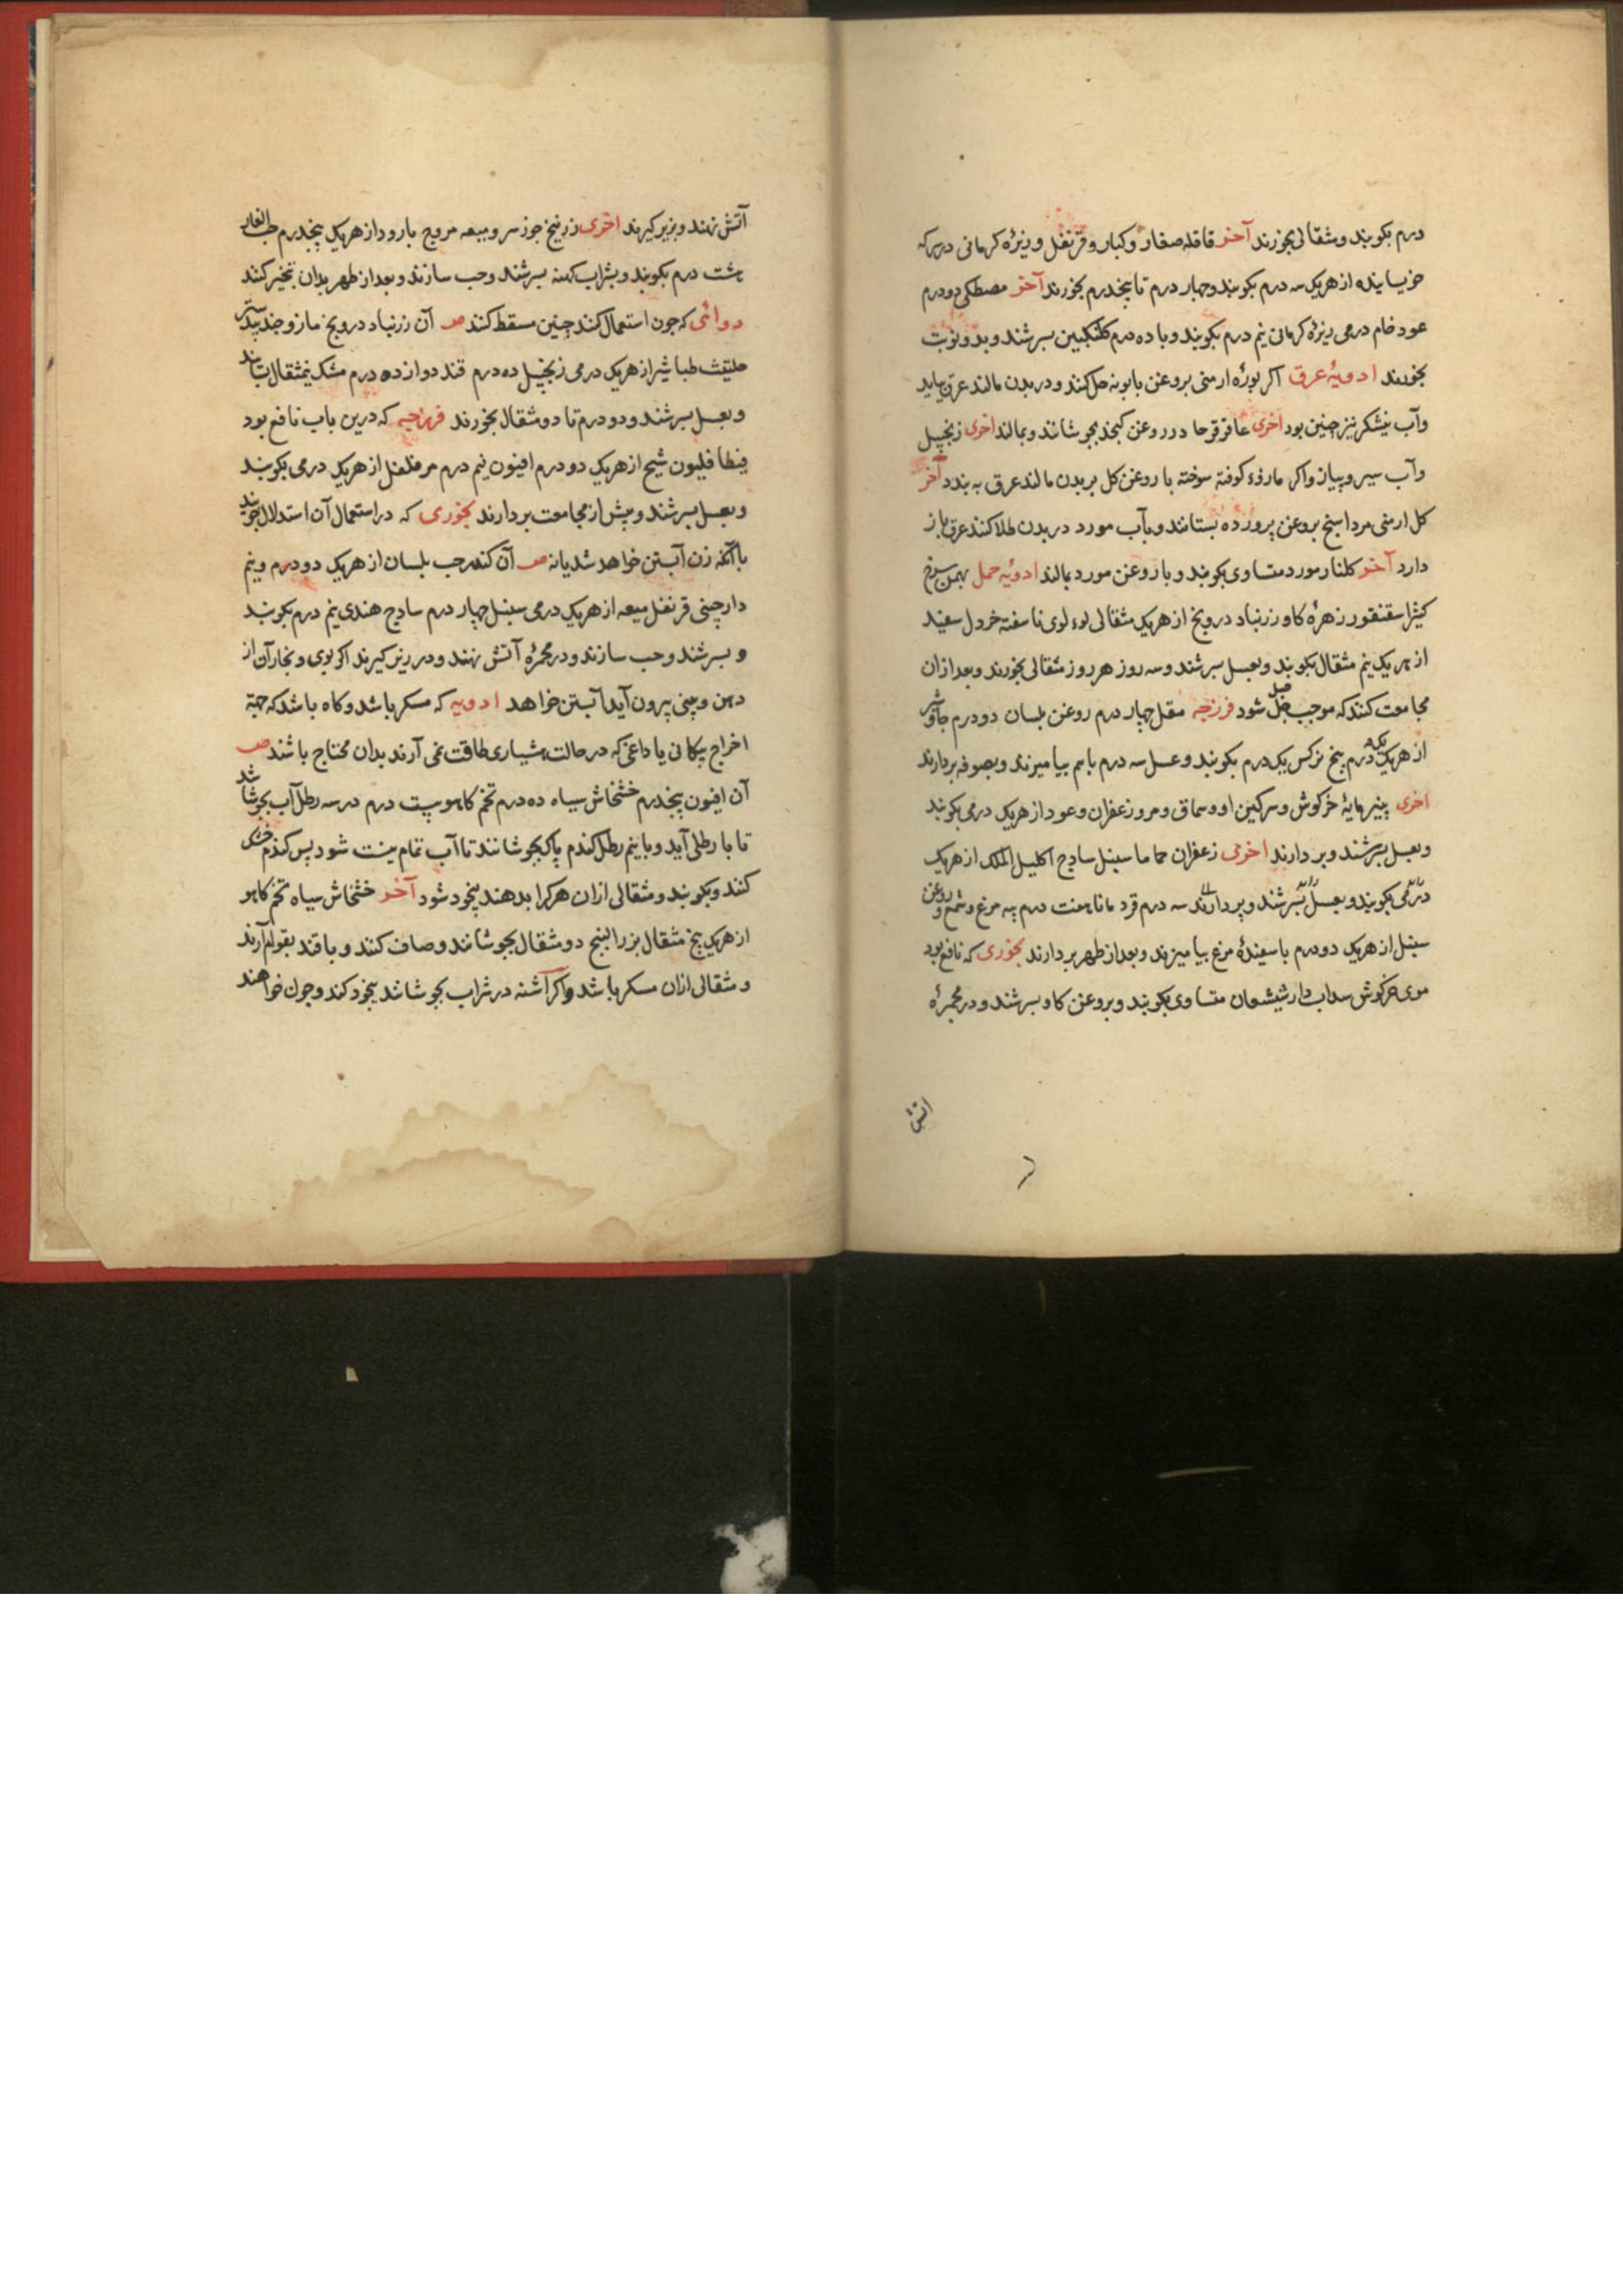 درم بکوبند و مثقالی بخورند آخر قاقله صغار و کبار و قرنفل و زیره کرمانی در سرکه
خیسانیده از هریک سه درم بکوبند و چهار درم تا پنجدرم بخورند آخر مصطکی دو درم
عود خام درمی زیره کرمانی نیم درم بکوبند و با ده درم کلنکبین بسرشند و بدو نوبت
بخورند ادویهٔ عرق اکر بوره ارمنی بروغن بابونه حل کنند و در بدن مالند عرق بیاید
وآب نیشکر نیز چنین بود اخری عاقرقرحا در روغن کنجد بجوشانند و بمالند اخری زنجبیل
وآب سیر و پیاز واکر مازوء کوفته سوخته با روغن کل بر بدن مالند عرق به بندد آخر
کل ارمنی مرداسنج بروغن پرورده بستانند و بآب مورد در بدن طلا کنند عرق باز
دارد آخر کلنار مورد متساوی بکوبند و با روغن مورد بمالند ادویهٔ حمل بهمن سرخ
کثیرا سقنقور زهرهٔ کاو زرنباد درونج از هریک مثقالی لوءلوی ناسفته خردل سفید
از هریک نیم مثقال بکوبند و بعسل سرشند و سه روز هر روز مثقالی بخورند و بعد ازان
مجامعت کنند که موجب حبل شود فرزجه مقل چهار درم روغن بلسان دو درم جاوشیر
از هریک درم بیخ نرکس یکدرم بکوبند و عسل سه درم باهم بیامیزند و بصوفه بردارند
اخری پنیر مایهٔ خرکوش و سرکین او و سماق و مر و زعفران و عود از هریک درمی بکوبند
و بعسل بسرشند و بردارند اخری زعفران حماما سنبل ساذج اکلیل الملک از هریک
درمی بکوبند و بعسل بسرشند و بردارند سه درم قردمانا هفت درم پیه مرغ و شمع و روغن
سنبل از هریک دو درم با سفیدهٔ مرغ بیامیزند و بعد از طهر بردارند بخوری که نافع بود
موی خرکوش سداب دارشیشعان متساوی بکوبند و بروغن کاو بسرشند و در مجمرهٔ
اتش
آتش نهند و بزیر کیرند اخری زرنیخ جوز سرو میعه مر وج بارود از هریک پنجدرم حب الغار
هشت درم بکوبند و بشراب کهنه بسرشند و حب سازند و بعد از طهر بدان تبخیر کنند
دوائی که چون استعمال کنند جنین مسقط کنند صـ آن زرنباد درونج مازو جندبیدستر
حلتیث طباشیر از هریک درمی زنجبیل ده درم قند دوازده درم مشک نیمثقال بسایند
و بعسل بسرشند و دو درم تا دو مثقال بخورند فرزجه که درین باب نافع بود
شیح از هریک دو درم افیون نیم درم مر فلفل از هریک درمی بکوبند
و بعسل بسرشند و پیش از مجامعت بردارند بخوری که در استعمال آن استدلال جویند
باآنکه زن آبستن خواهد شد یا نه صـ آن کندر حب بلسان از هریک دو درم و نیم
دارچینی قرنفل میعه از هریک درمی سنبل چهار درم ساذج هندی نیم درم بکوبند
و بسرشند و حب سازند و در مجمرهٔ آتش نهند و در زیر کیرند اکر بوی و بخار آن از
دهن و بینی بیرون آید آبستن خواهد ادویه که مسکر باشد و کاه باشد که جهة
اخراج پیکانی یا داغی که در حالت هشیاری طاقت نمی آرند بدان محتاج باشند صـ
آن افیون پنجدرم خشخاش سیاه ده درم تخم کاهو بیست درم در سه رطل آب بجوشانند
تا با رطلی آید و با نیم رطل کندم پاک بجوشانند تا آب تمام نیست شود پس کندم خشک
کنند و بکوبند و مثقالی ازان هرکرا بدهند بیخود شود آخر خشخاش سیاه تخم کاهو
از هریک پنج مثقال بزرالبنج دو مثقال بجوشانند و صاف کنند و با قند بقوام آرند
و مثقالی ازان مسکر باشد واکر اشنه در شراب بجوشانند بیخود کند و چون خواهند